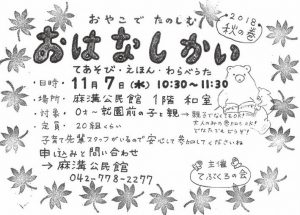 2018
秋の巻
おやこで たのしむ
おはなしかい
てあそび・えほん・わらべうた
・日時・ 11月7日(水) 10:30～11:30
・場所・ 麻溝公民館 1階 和室
・対象・ 0才～就園前の子と親
→親子でなくてもOK!
大人のみの参加もOK!
どなたでもどうぞ!
・定員・ 20組くらい
子育て先輩スタッフがいるので安心して参加してくださいね
申し込みと問い合わせ
→麻溝公民館
042-778-2277
主催
てぶくろの会